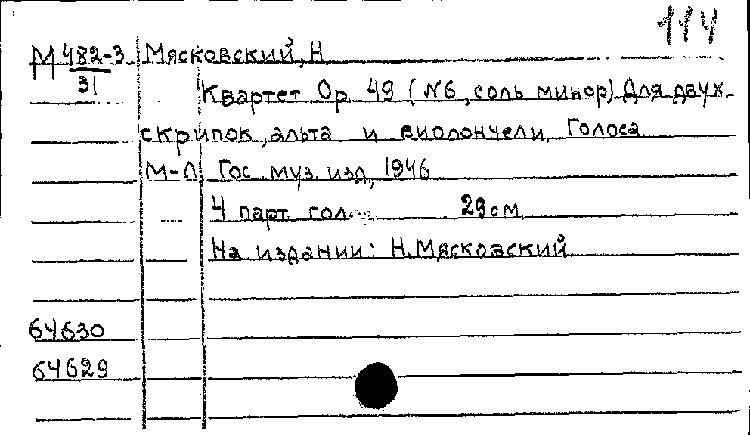 114
М 482-3 Мясковский, Н
31
Квартет Ор 49 (№6, соль минор) Для двух
скрипок, альта и виолончели, Голоса
М-Л Гос. муз. изд, 1946
4 парт гол 29 см
На издании: Н. Мясковский
64630
64629